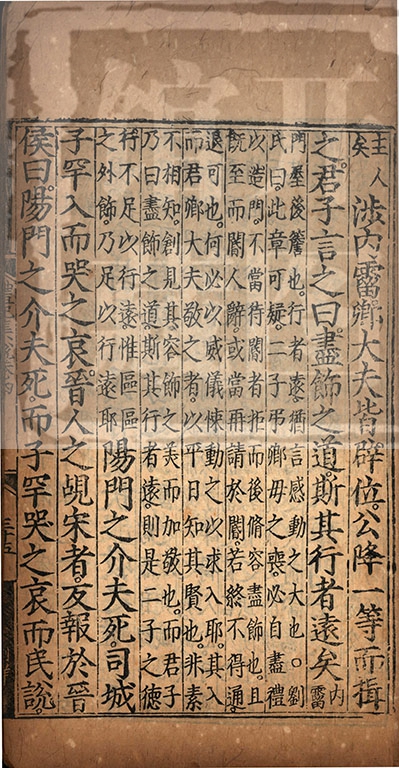 主人
矣
涉內霤。卿大夫皆辟位。公降一等而揖
之。君子言之曰。盡飾之道。斯其行者遠矣
內
霤
門屋後簷也。行者遠。猶言感動之大也。○劉
氏曰。此章可疑。二子弔卿母之喪。必自盡禮
以造門。不當待閽者拒而後脩容盡飾也。且
既至而閽人辭。或當再請於閽。若終不得通。
退可也。何必以威儀悚動之以求入耶。其入
而君卿大夫敬之者。以平日知其賢也。非素
不相知。創見其容飾之美而加敬也。而君子
乃曰盡飾之道。斯其行者遠。則是二子之德
行不足以行遠。惟區區
之外飾乃足以行遠耶
陽門之介夫死。司城
子罕入而哭之哀。晉人之覘宋者。反報於晉
侯曰。陽門之介夫死。而子罕哭之哀。而民說。